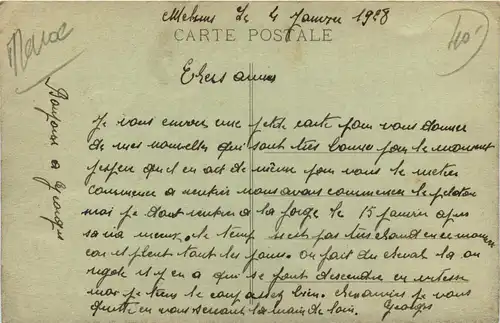 Maroc
Meknes Le 4 Janvier 1928
CARTE POSTALE
40
Chers amis
Je vous envoie une petite carte pour vous donner
de mes nouvelles qui sont très bonne pour le moment
j'espère qu'il en est de même pour vous le métier
commence a rentrée nous avons commencer le peloton
moi je doit rentrer a la forge le 15 janvier apres
sa ira mieux. le temp n'est pas très chaud en ce moment
car il pleut tout les jours. on fait du cheval la on
rigole il y en a qui se font descendre en vitesse
moi je tiens le coup assez bien. chers amis je vous
quitte en vous serrant la main de loin. Georges
Bonjour a Georges